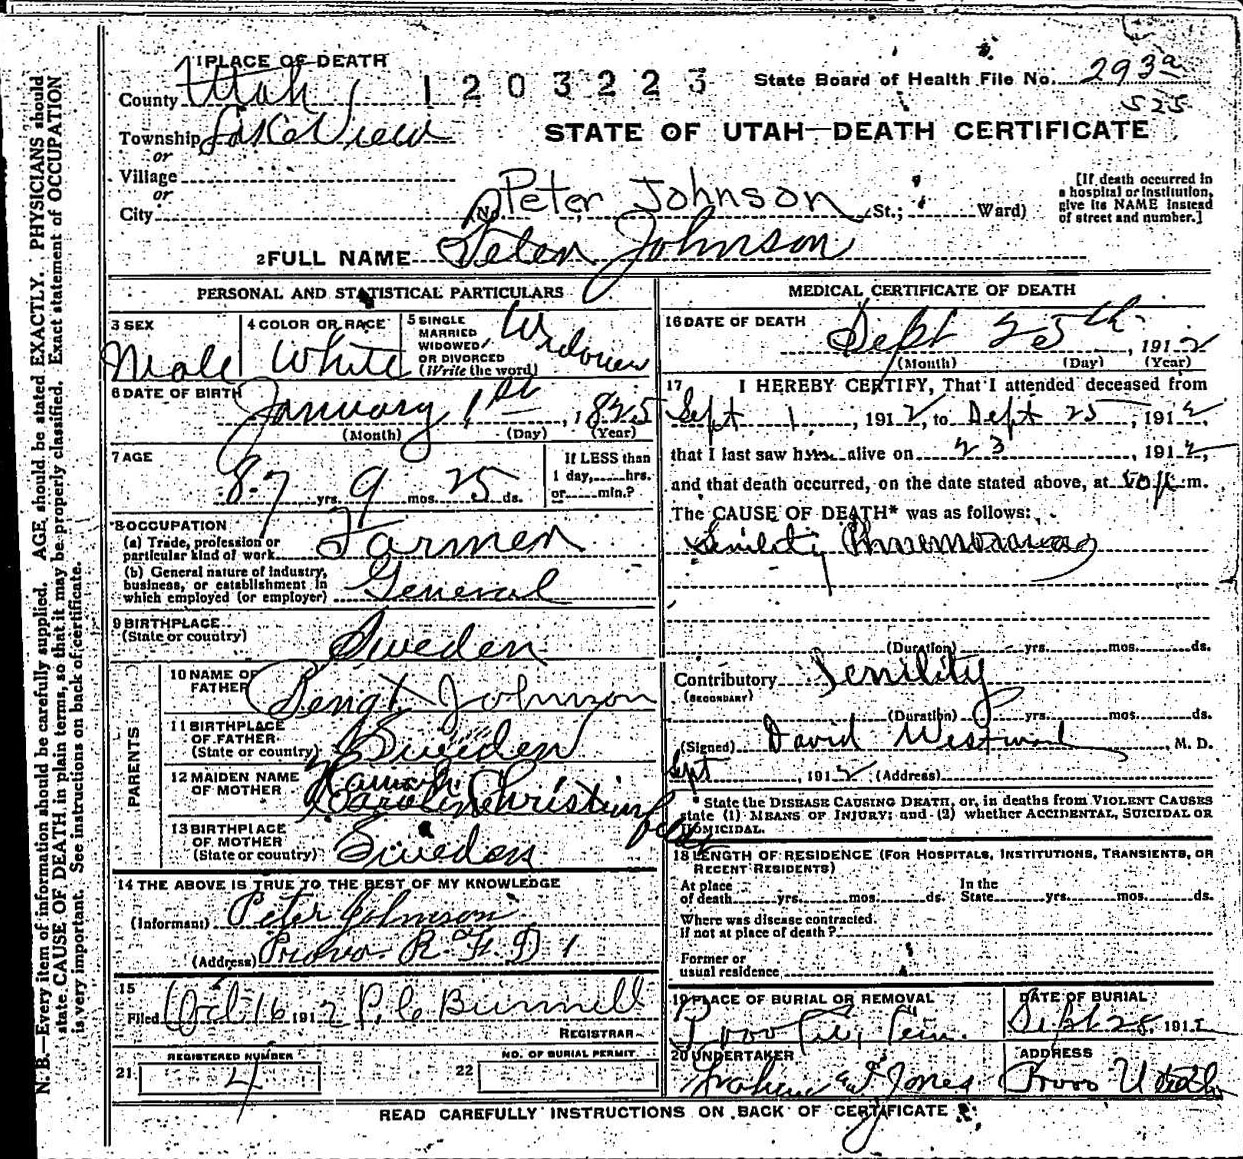 1 PLACE OF DEATH
County Utah 1203223 State Board of Health File No. 293a
525
Township Lake View STATE OF UTAH—DEATH CERTIFICATE
or
Village
or
City (No. Peter Johnson St.; Ward)
[If death occurred in
a hospital or institution,
give its NAME instead
of street and number.]
2 FULL NAME Peter Johnson
PERSONAL AND STATISTICAL PARTICULARS
3 SEX
Male
4 COLOR OR RACE
White
5 SINGLE
MARRIED
WIDOWED
OR DIVORCED
(Write the word)
Widower
6 DATE OF BIRTH
January 1st, 1825
(Month) (Day) (Year)
7 AGE
87 yrs. 9 mos. 25 ds.
If LESS than
1 day, hrs.
or min.?
8 OCCUPATION
(a) Trade, profession or
particular kind of work Farmer
(b) General nature of industry,
business, or establishment in
which employed (or employer) General
9 BIRTHPLACE
(State or country) Sweden
PARENTS
10 NAME OF
FATHER Bengt Johnson
11 BIRTHPLACE
OF FATHER
(State or country) Sweden
12 MAIDEN NAME
OF MOTHER
13 BIRTHPLACE
OF MOTHER
(State or country) Sweden
14 THE ABOVE IS TRUE TO THE BEST OF MY KNOWLEDGE
(Informant) Peter Johnson
(Address) Provo R.F.D 1
15
Filed Oct 16 1912
REGISTRAR
21 REGISTERED NUMBER
4
22 NO. OF BURIAL PERMIT
MEDICAL CERTIFICATE OF DEATH
16 DATE OF DEATH
Sept 25th, 1912
(Month) (Day) (Year)
17 I HEREBY CERTIFY, That I attended deceased from
Sept 1, 1912, to Sept 25, 1912
that I last saw him alive on 23, 1912,
and that death occurred, on the date stated above, at m.
The CAUSE OF DEATH* was as follows:
Senility
(Duration) yrs. mos. ds.
Contributory Senility
(SECONDARY)
(Duration) yrs. mos. ds.
(Signed) David Westwood, M. D.
Sept, 1912 (Address)
* State the DISEASE CAUSING DEATH, or, in deaths from VIOLENT CAUSES
state (1) MEANS OF INJURY; and (2) whether ACCIDENTAL, SUICIDAL OR
HOMICIDAL.
18 LENGTH OF RESIDENCE (FOR HOSPITALS, INSTITUTIONS, TRANSIENTS, OR
RECENT RESIDENTS)
At place
of death yrs. mos. ds.
In the
State yrs. mos. ds.
Where was disease contracted
If not at place of death?
Former or
usual residence
19 PLACE OF BURIAL OR REMOVAL
Provo City Cem.
DATE OF BURIAL
Sept 28, 1912
20 UNDERTAKER
Jones
ADDRESS
Provo Utah
READ CAREFULLY INSTRUCTIONS ON BACK OF CERTIFICATE
N. B.—Every item of information should be carefully supplied. AGE should be stated EXACTLY. PHYSICIANS should
state CAUSE OF DEATH in plain terms, so that it may be properly classified. Exact statement of OCCUPATION
is very important. See instructions on back of certificate.